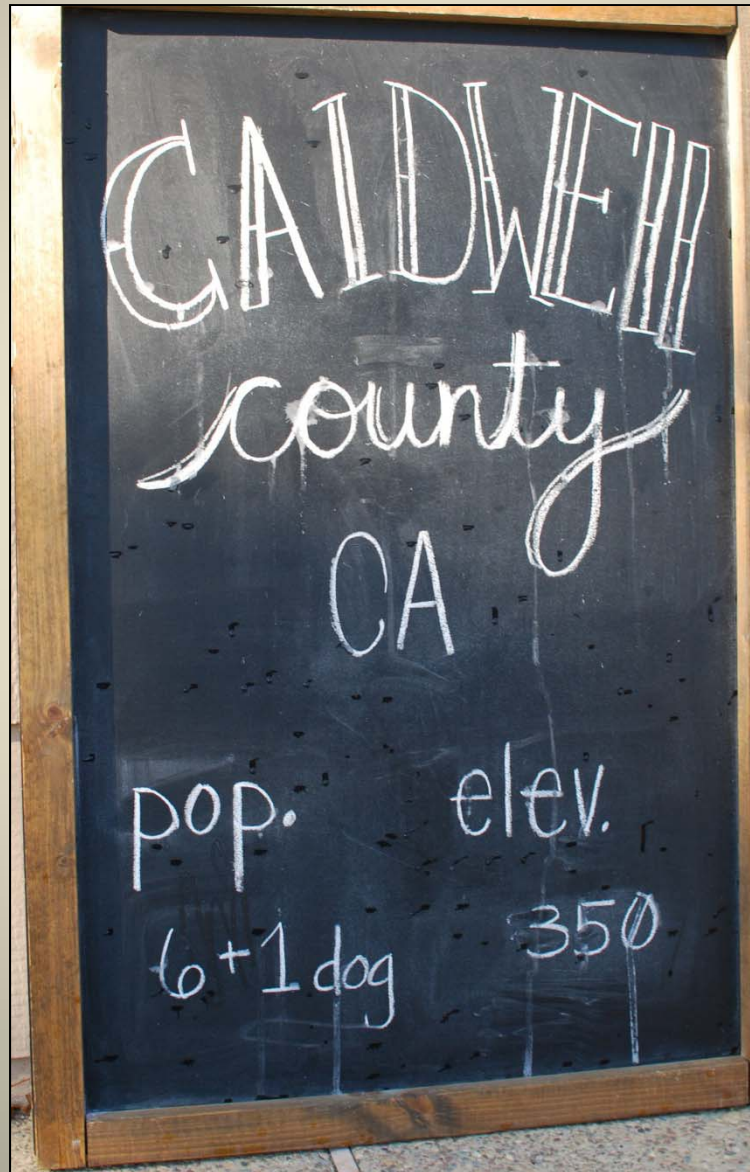 CALDWELL
county
CA
pop. elev.
6+1 dog 350